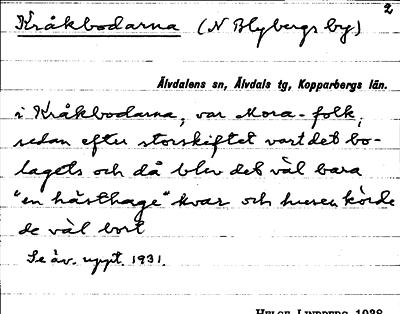 2
Kråkbodarna (N Blybergs by)
Älvdalens sn, Älvdals tg, Kopparbergs län.
i Kråkbodarna, var Mora-folk,
sedan efter storskiftet vart det bo-
lagets och då blev det väl bara
"en hästhage" kvar och husen körde
de väl bort
Se äv. uppt. 1931.
HELGE LINDBERG 1938